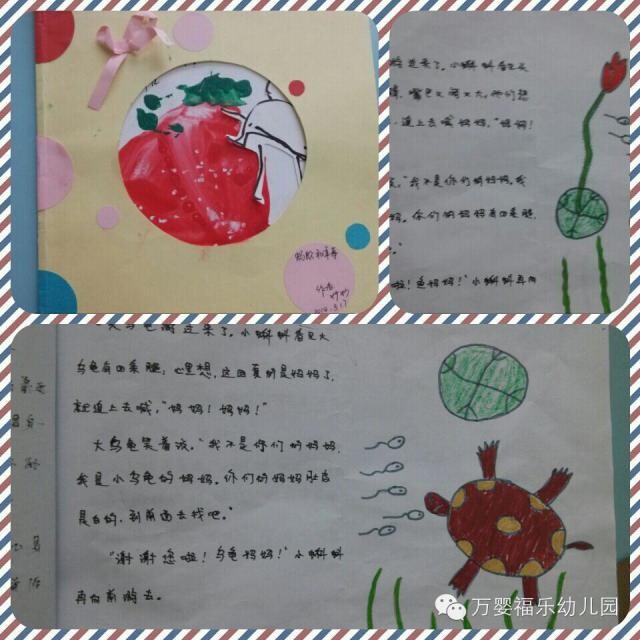 蚂蚁和草莓
作者
游过来了。小蝌蚪看见
嘴巴又阔又大,他们想
追上去喊妈妈,“妈妈!
“我不是你们的妈妈。我
妈。你们的妈妈有四条腿,
啦!鱼妈妈!”小蝌蚪再向
大乌龟游过来了。小蝌蚪看见大
乌龟有四条腿,心里想,这回真的是妈妈了,
就追上去喊,“妈妈!妈妈!”
大乌龟笑着说。“我不是你们的妈妈,
我是小乌龟的妈妈。你们的妈妈肚皮
是白的,到前面去找吧。”
“谢谢您啦!乌龟妈妈!”小蝌蚪
再向前游去。
万婴福乐幼儿园